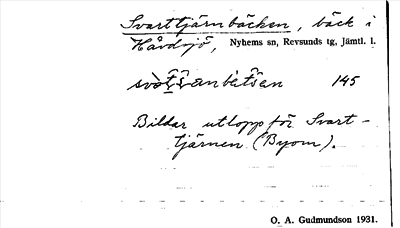 Svarttjärnbäcken, bäck i
Hårdsjö, Nyhems sn, Revsunds tg, Jämtl. l.
145
Bildar utlopp för Svart-
tjärnen (Byom).
O. A. Gudmundson 1931.